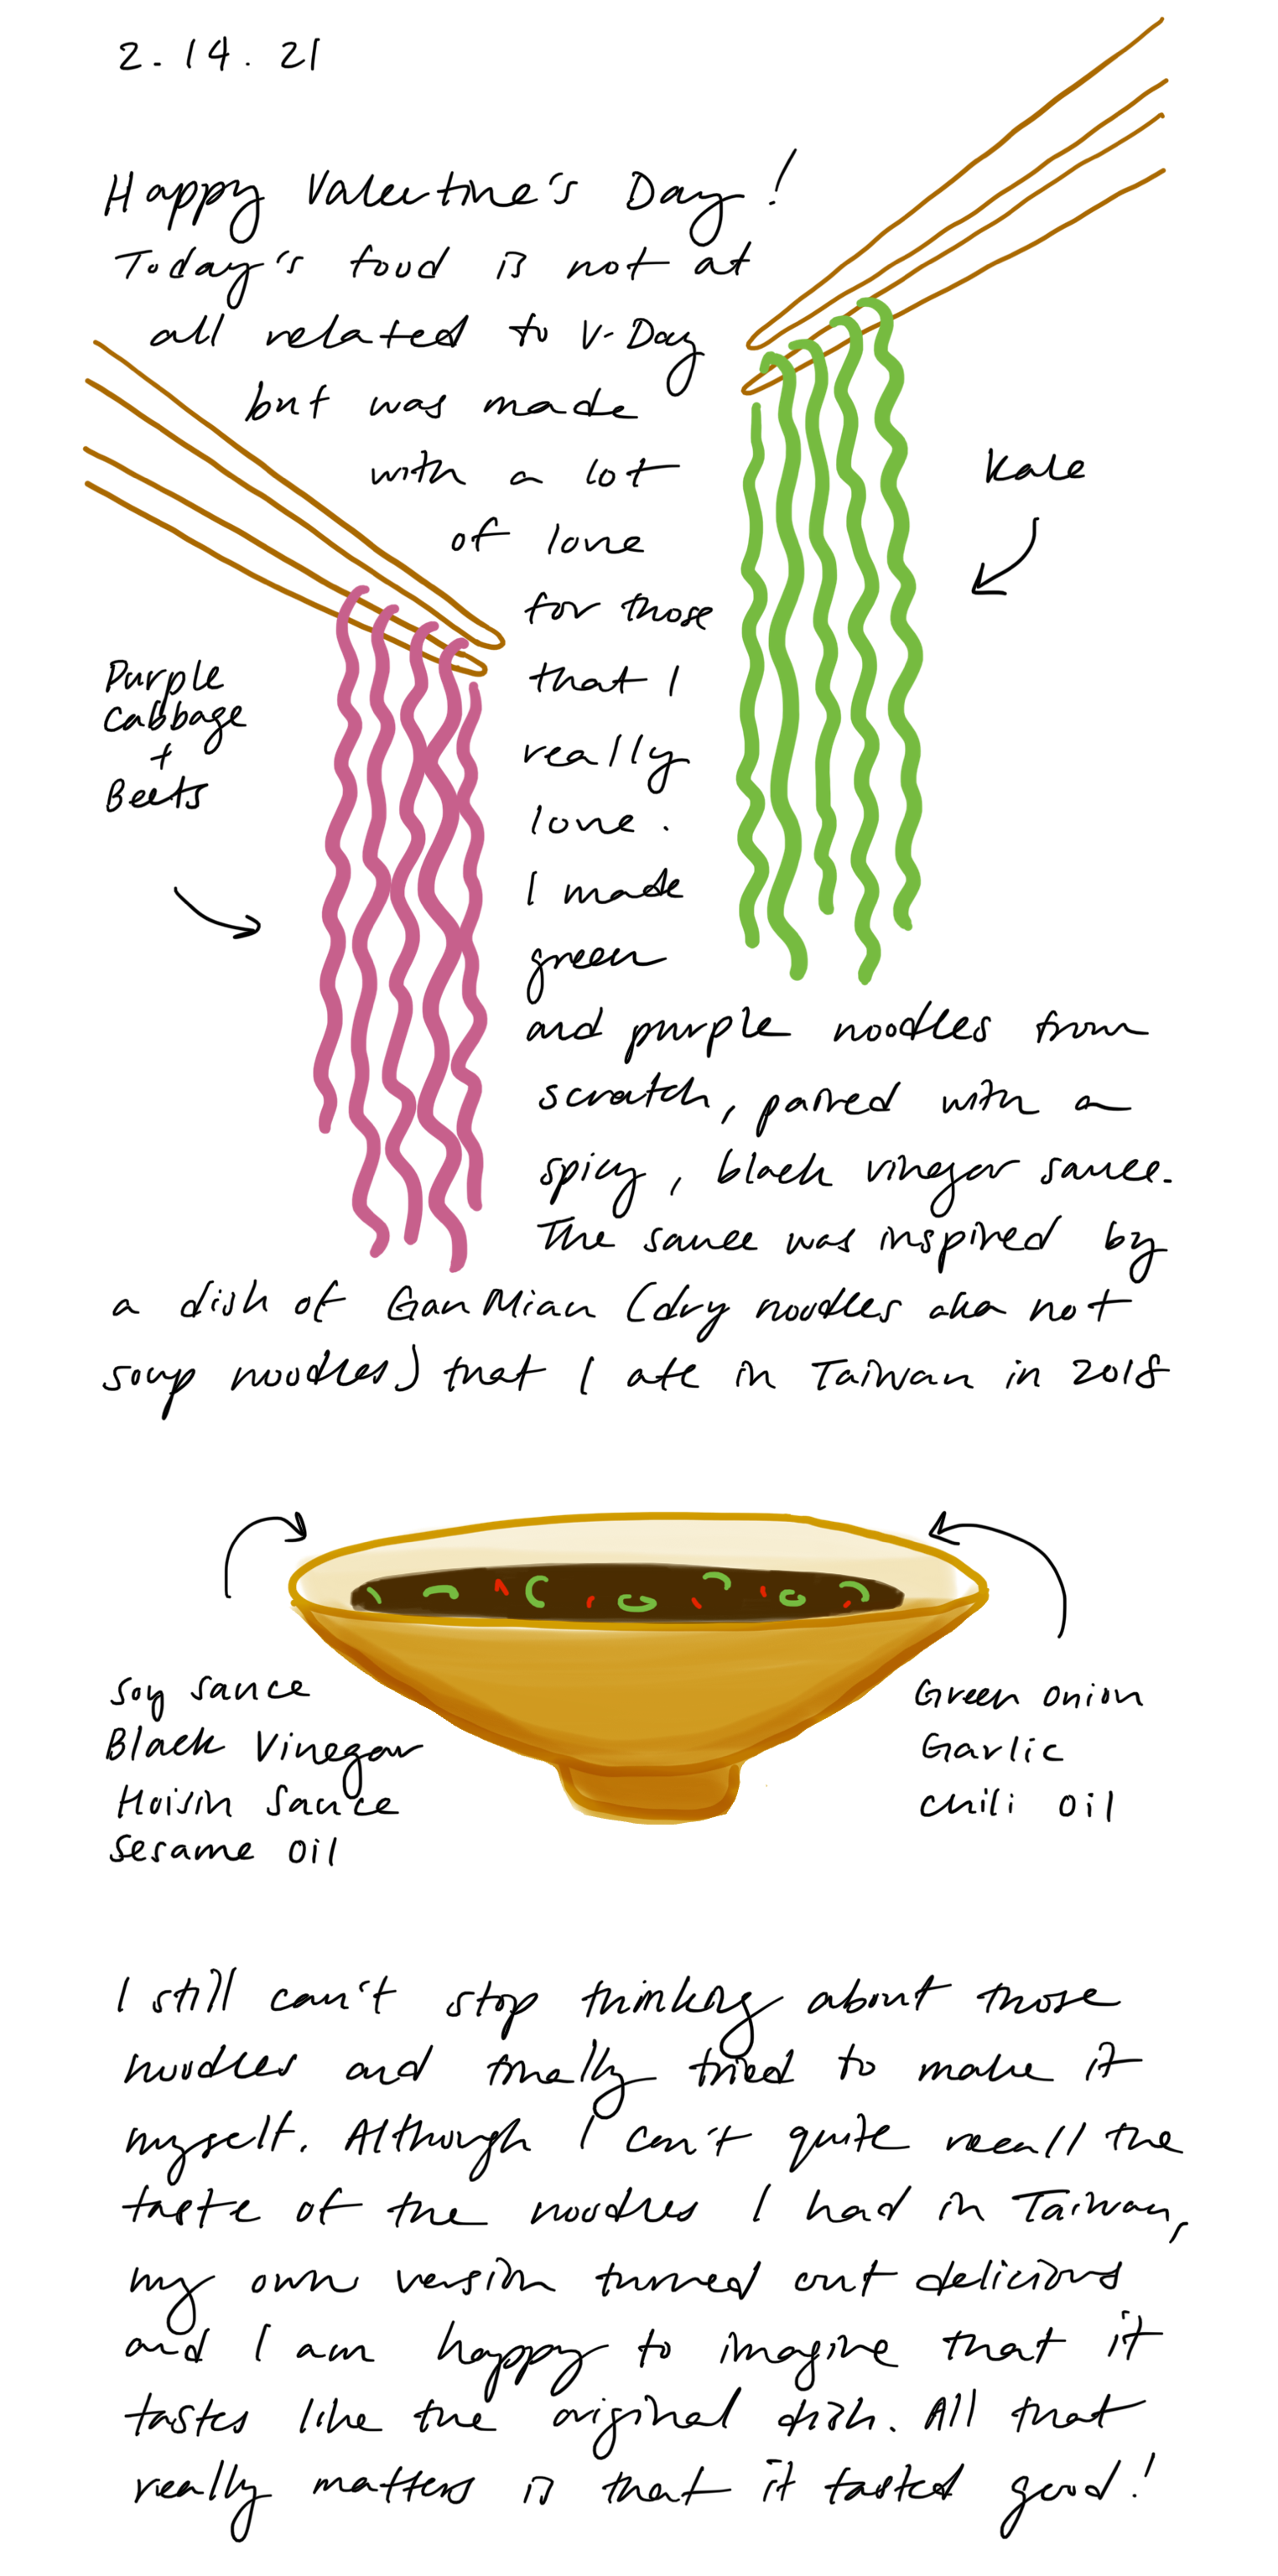 2.14.21
Happy Valentine's Day!
Today's food is not at
all related to V-Day
but was made
with a lot
of love
for those
that I
really
love.
I made
green
and purple noodles from
scratch, paired with a
spicy, black vinegar sauce.
The sauce was inspired by
a dish of GanMian (dry noodles aka not
soup noodles) that I ate in Taiwan in 2018
Kale
Purple
Cabbage
+
Beets
Soy Sauce
Black Vinegar
Hoisin Sauce
Sesame Oil
Green Onion
Garlic
Chili Oil
I still can't stop thinking about those
noodles and finally tried to make it
myself. Although I can't quite recall the
taste of the noodles I had in Taiwan,
my own version turned out delicious
and I am happy to imagine that it
tastes like the original dish. All that
really matters is that it tasted good!